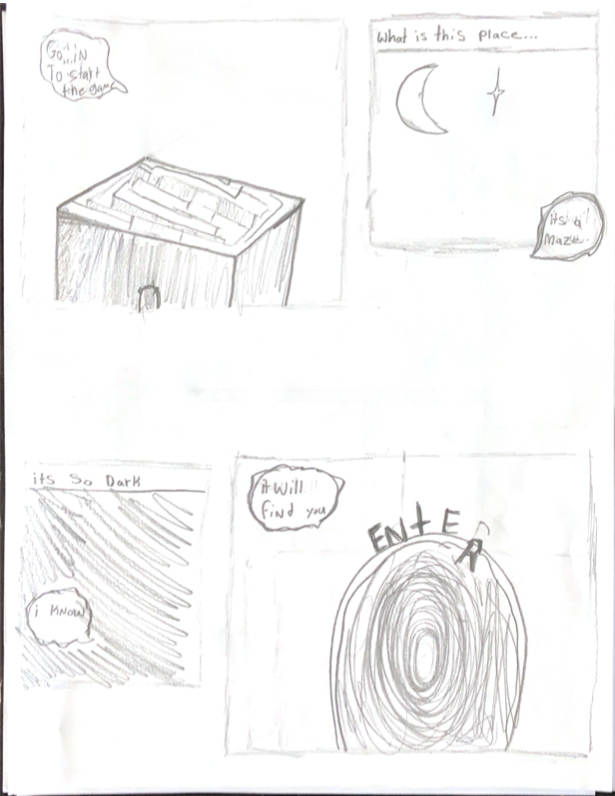 Go...iN
To start
the game
What is this place...
its a
Maze..
its So Dark
i KNOW
it Will
Find you
ENtER